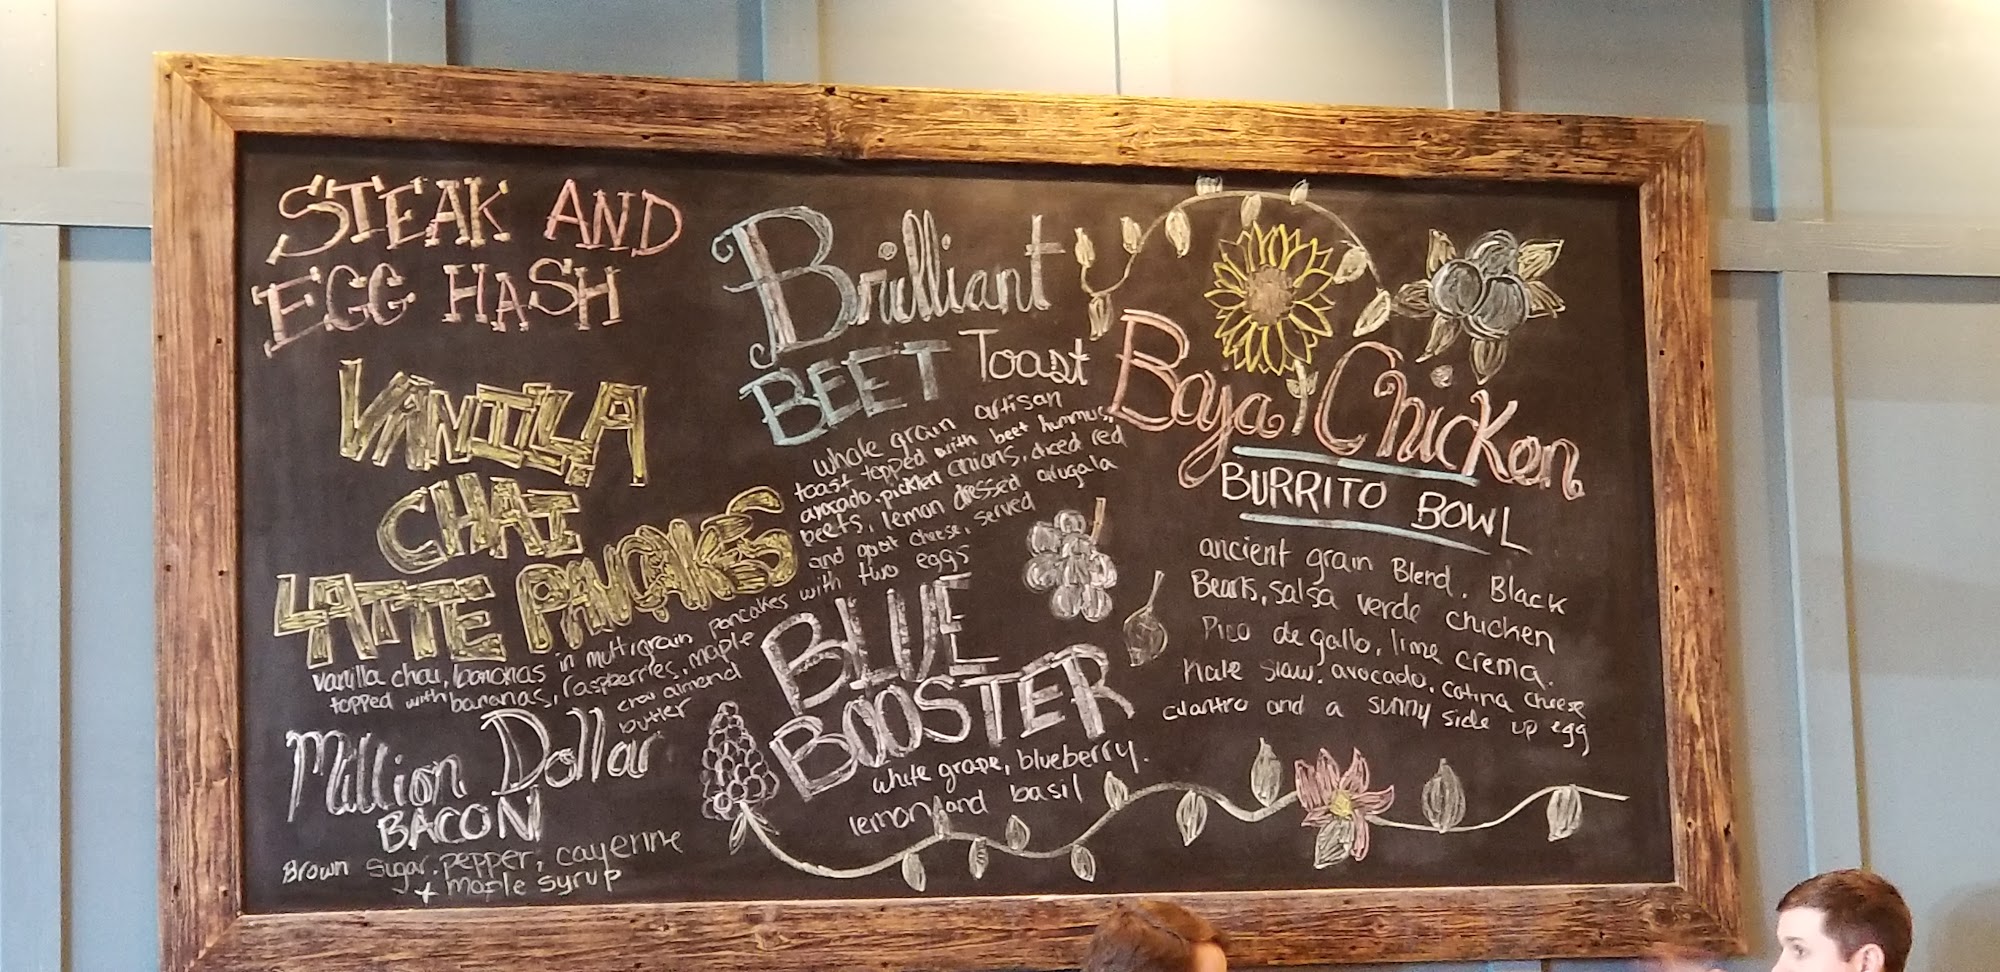 STEAK AND
EGG HASH
VANILLA
CHAI
LATTE PANCAKES
vanilla chai, bananas in multigrain pancakes
topped with bananas, raspberries, maple
almond
butter
Million Dollar
BACON
Brown Sugar, pepper, cayenne
+ maple syrup
Brilliant
BEET Toast
whole grain artisan
toast topped with beet hummus,
avocado, pickled onions, diced red
beets, lemon dressed arugula
and goat cheese, served
with two eggs
BLUE
BOOSTER
white grape, blueberry,
lemon and basil
Baja Chicken
BURRITO BOWL
ancient grain Blend, Black
Beans, salsa verde chicken
Pico de gallo, lime crema,
kale slaw, avocado, cotina cheese
cilantro and a sunny side up egg